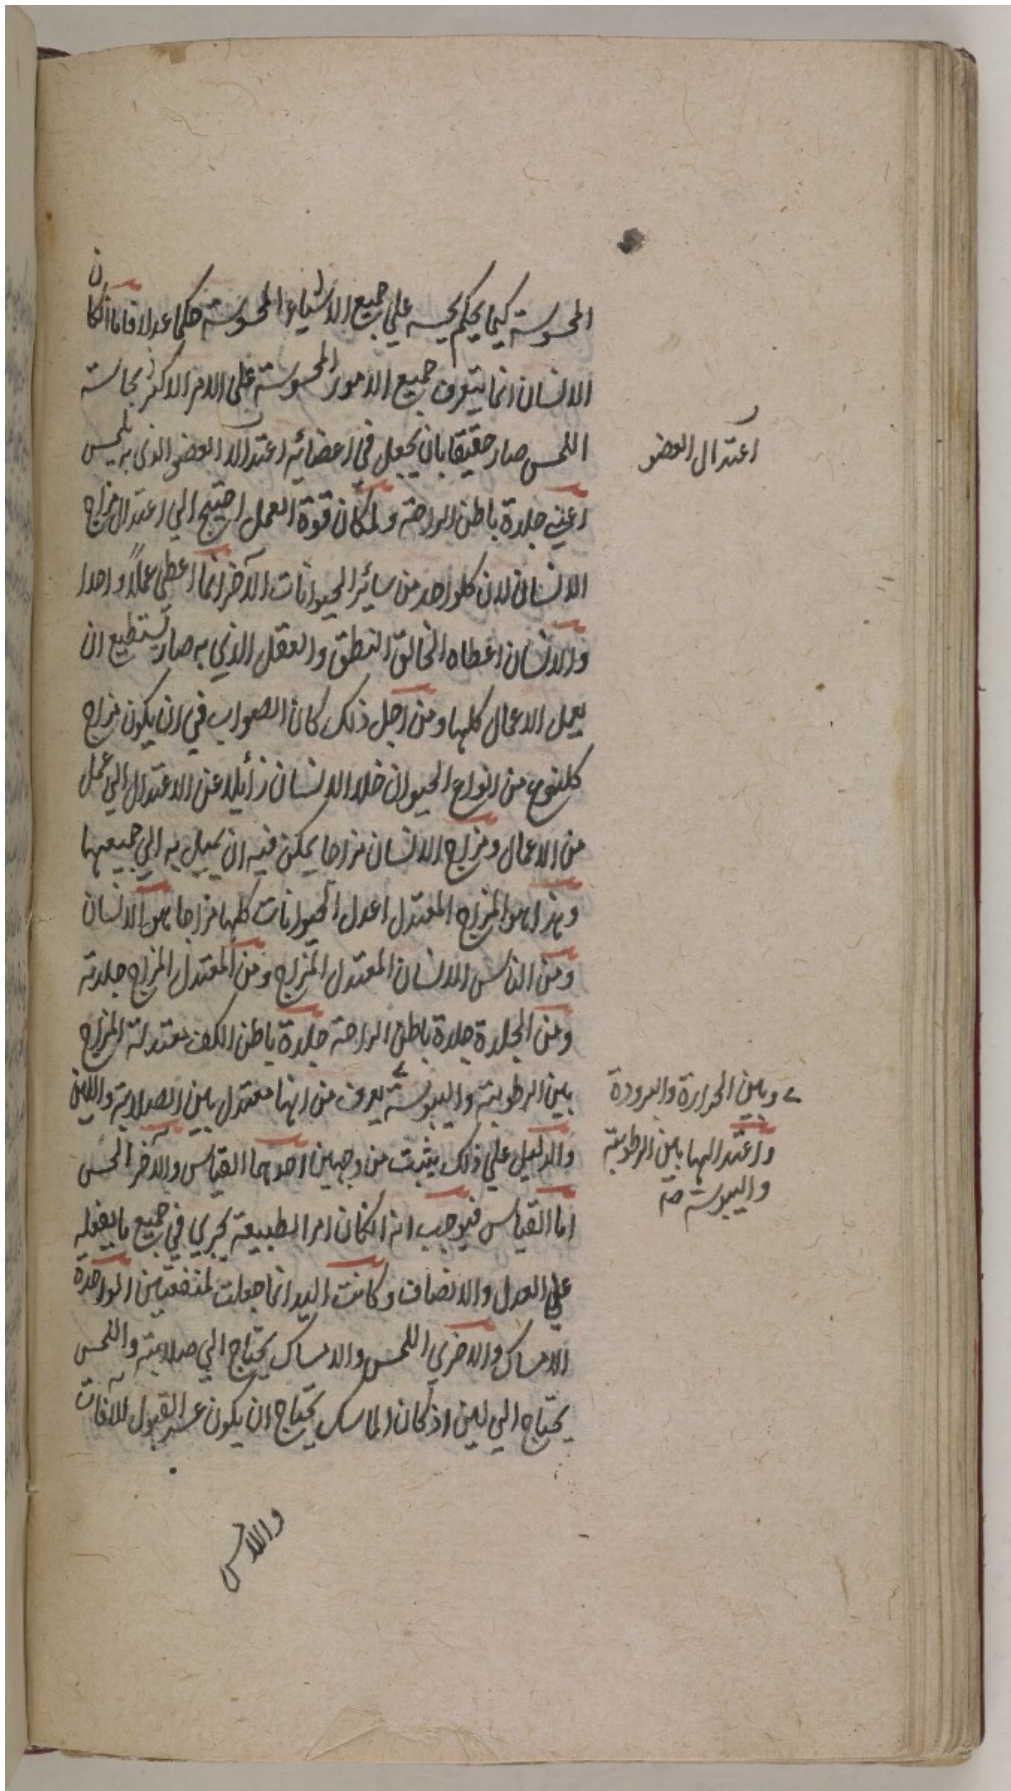 المحسوسة كيما يحكم بحسه علي جميع الاشياء المحسوسة حكما عدلا فاما كان
الانسان انما يتعرف جميع الامور المحسوسة علي الامر الاكثر بحاسة
اللمس صار حقيقا بان يجعل في اعضائه اعتدالا العضو الذي به يلمس
اعتدال العضو
اعني جلدة باطن الراحة ولمكان قوة العمل احتيج الي اعتدال مزاج
الانسان لان كلواحد من ساير الحيوانات الآخر انما اعطي عملاً واحدا
والانسان اعطاه الخالق النطق والعقل الذي به صار يستطيع ان
يعمل الاعمال كلها ومن اجل ذلك كان الصواب في ان يكون مزاج
كلنوع من انواع الحيوان خلا الانسان زائلا عن الاعتدال الي عمل
من الاعمال ومزاج الانسان مزاجا يمكن فيه ان يميل به الي جميعها
وهذا هو المزاج المعتدل اعدل الحيوانات كلها مزاجا هو الانسان
ومن الناس الانسان المعتدل المزاج ومن المعتدل المزاج جلدته
ومن الجلدة جلدة باطن الراحة جلدة باطن الكف معتدلة المزاج
بين الرطوبة واليبوسة يعرف من انها معتدل بين الصلابة واللين
وبين الحرارة والبرودة
واعتدالها بين الرطوبة
واليبوسة صة
والدليل علي ذلك يثبت من وجهين احدهما القياس والآخر الحس
اما القياس فيوجب انه الكان امر الطبيعة يجري في جميع ما يفعله
علي العدل والانصاف وكانت اليد انما جعلت لمنفعتين الواحدة
الامساك والاخري اللمس والامساك يحتاج الي صلابة واللمس
يحتاج الي لين اذ كان الماسك يحتاج ان يكون عسر القبول للآفات
واللامس